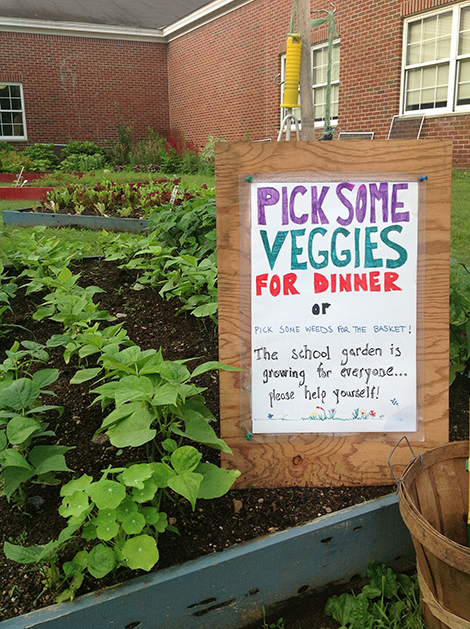 PICK SOME
VEGGIES
FOR DINNER
or
PICK SOME WEEDS FOR THE BASKET!
The school garden is
growing for everyone...
please help yourself!